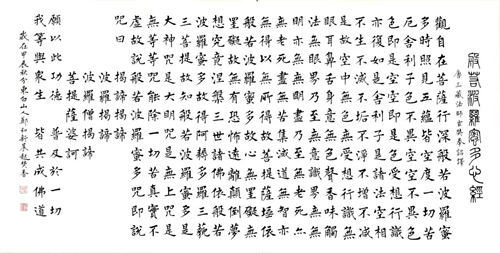 般若波羅蜜多心經
唐三藏法師玄奘奉詔譯
觀自在菩薩行深般若波羅蜜
多時照見五蘊皆空度一切苦
厄舍利子色不異空空不異色
色即是空空即是色受想行識
亦復如是舍利子是諸法空相
不生不滅不垢不淨不增不減
是故空中無色無受想行識無
眼耳鼻舌身意無色聲香味觸
法無眼界乃至無意識界無無
明亦無無明盡乃至無老死亦
無老死盡無苦集滅道無智亦
無得以無所得故菩提薩埵依
般若波羅蜜多故心無罣礙無
罣礙故無有恐怖遠離顛倒夢
想究竟涅槃三世諸佛依般若
波羅蜜多故得阿耨多羅三藐
三菩提故知般若波羅蜜多是
大神咒是大明咒是無上咒是
無等等咒能除一切苦真實不
虛故說般若波羅蜜多咒即說
咒曰
揭諦揭諦
波羅揭諦
波羅僧揭諦
菩提薩婆訶
願以此功德 普及於一切
我等與眾生 皆共成佛道
歲在甲辰秋分東白山人